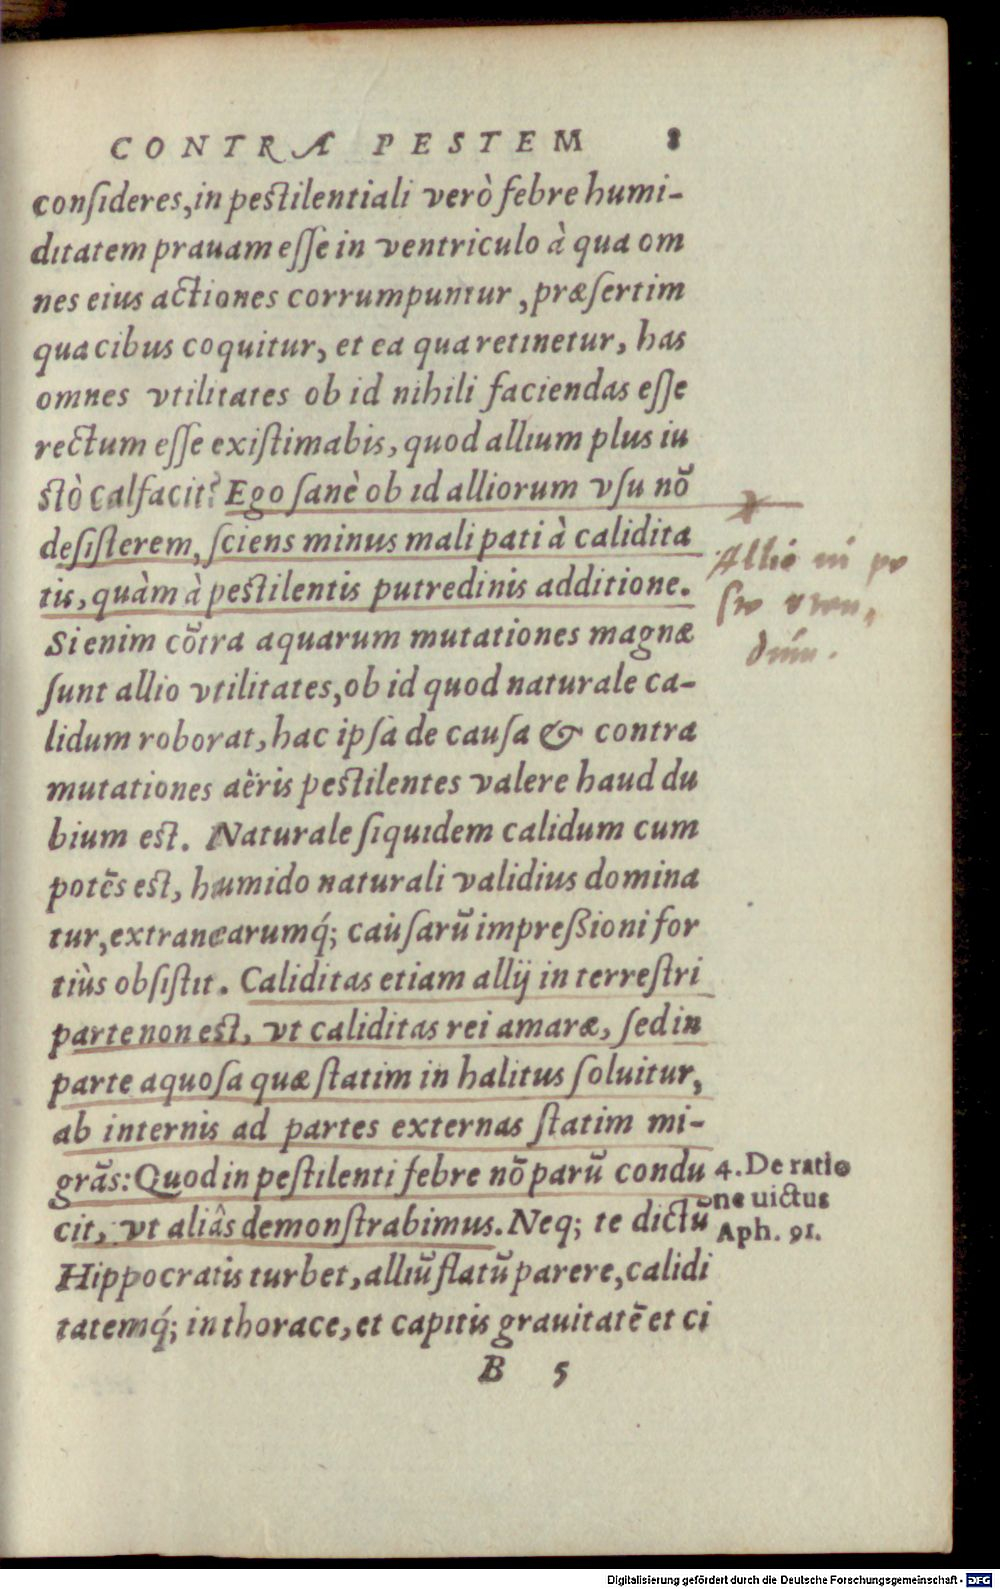 CONTRA PESTEM 8
consideres, in pestilentiali verò febre humi-
ditatem prauam esse in ventriculo à qua om
nes eius actiones corrumpuntur, præsertim
qua cibus coquitur, et ea qua retinetur, has
omnes vtilitates ob id nihili faciendas esse
rectum esse existimabis, quod allium plus iu
stò calfacit? Ego sanè ob id alliorum vsu nō
desisterem, sciens minus mali pati à calidita
tis, quàm à pestilentis putredinis additione.
Si enim cōtra aquarum mutationes magnæ
sunt allio vtilitates, ob id quod naturale ca-
lidum roborat, hac ipsa de causa & contra
mutationes aëris pestilentes valere haud du
bium est. Naturale siquidem calidum cum
potēs est, humido naturali validius domina
tur, extranearumq́; causarū impreßioni for
tiùs obsistit. Caliditas etiam allij in terrestri
parte non est, vt caliditas rei amaræ, sed in
parte aquosa quæ statim in halitus soluitur,
ab internis ad partes externas statim mi-
grās: Quod in pestilenti febre nō parū condu
cit, vt aliâs demonstrabimus. Neq; te dictū
Hippocratis turbet, alliū flatū parere, calidi
tatemq́; in thorace, et capitis grauitatē et ci
B 5
Allio in pe
ste vten,
dum.
4. De ratio
ne uictus
Aph. 91.
Digitalisierung gefördert durch die Deutsche Forschungsgemeinschaft - DFG